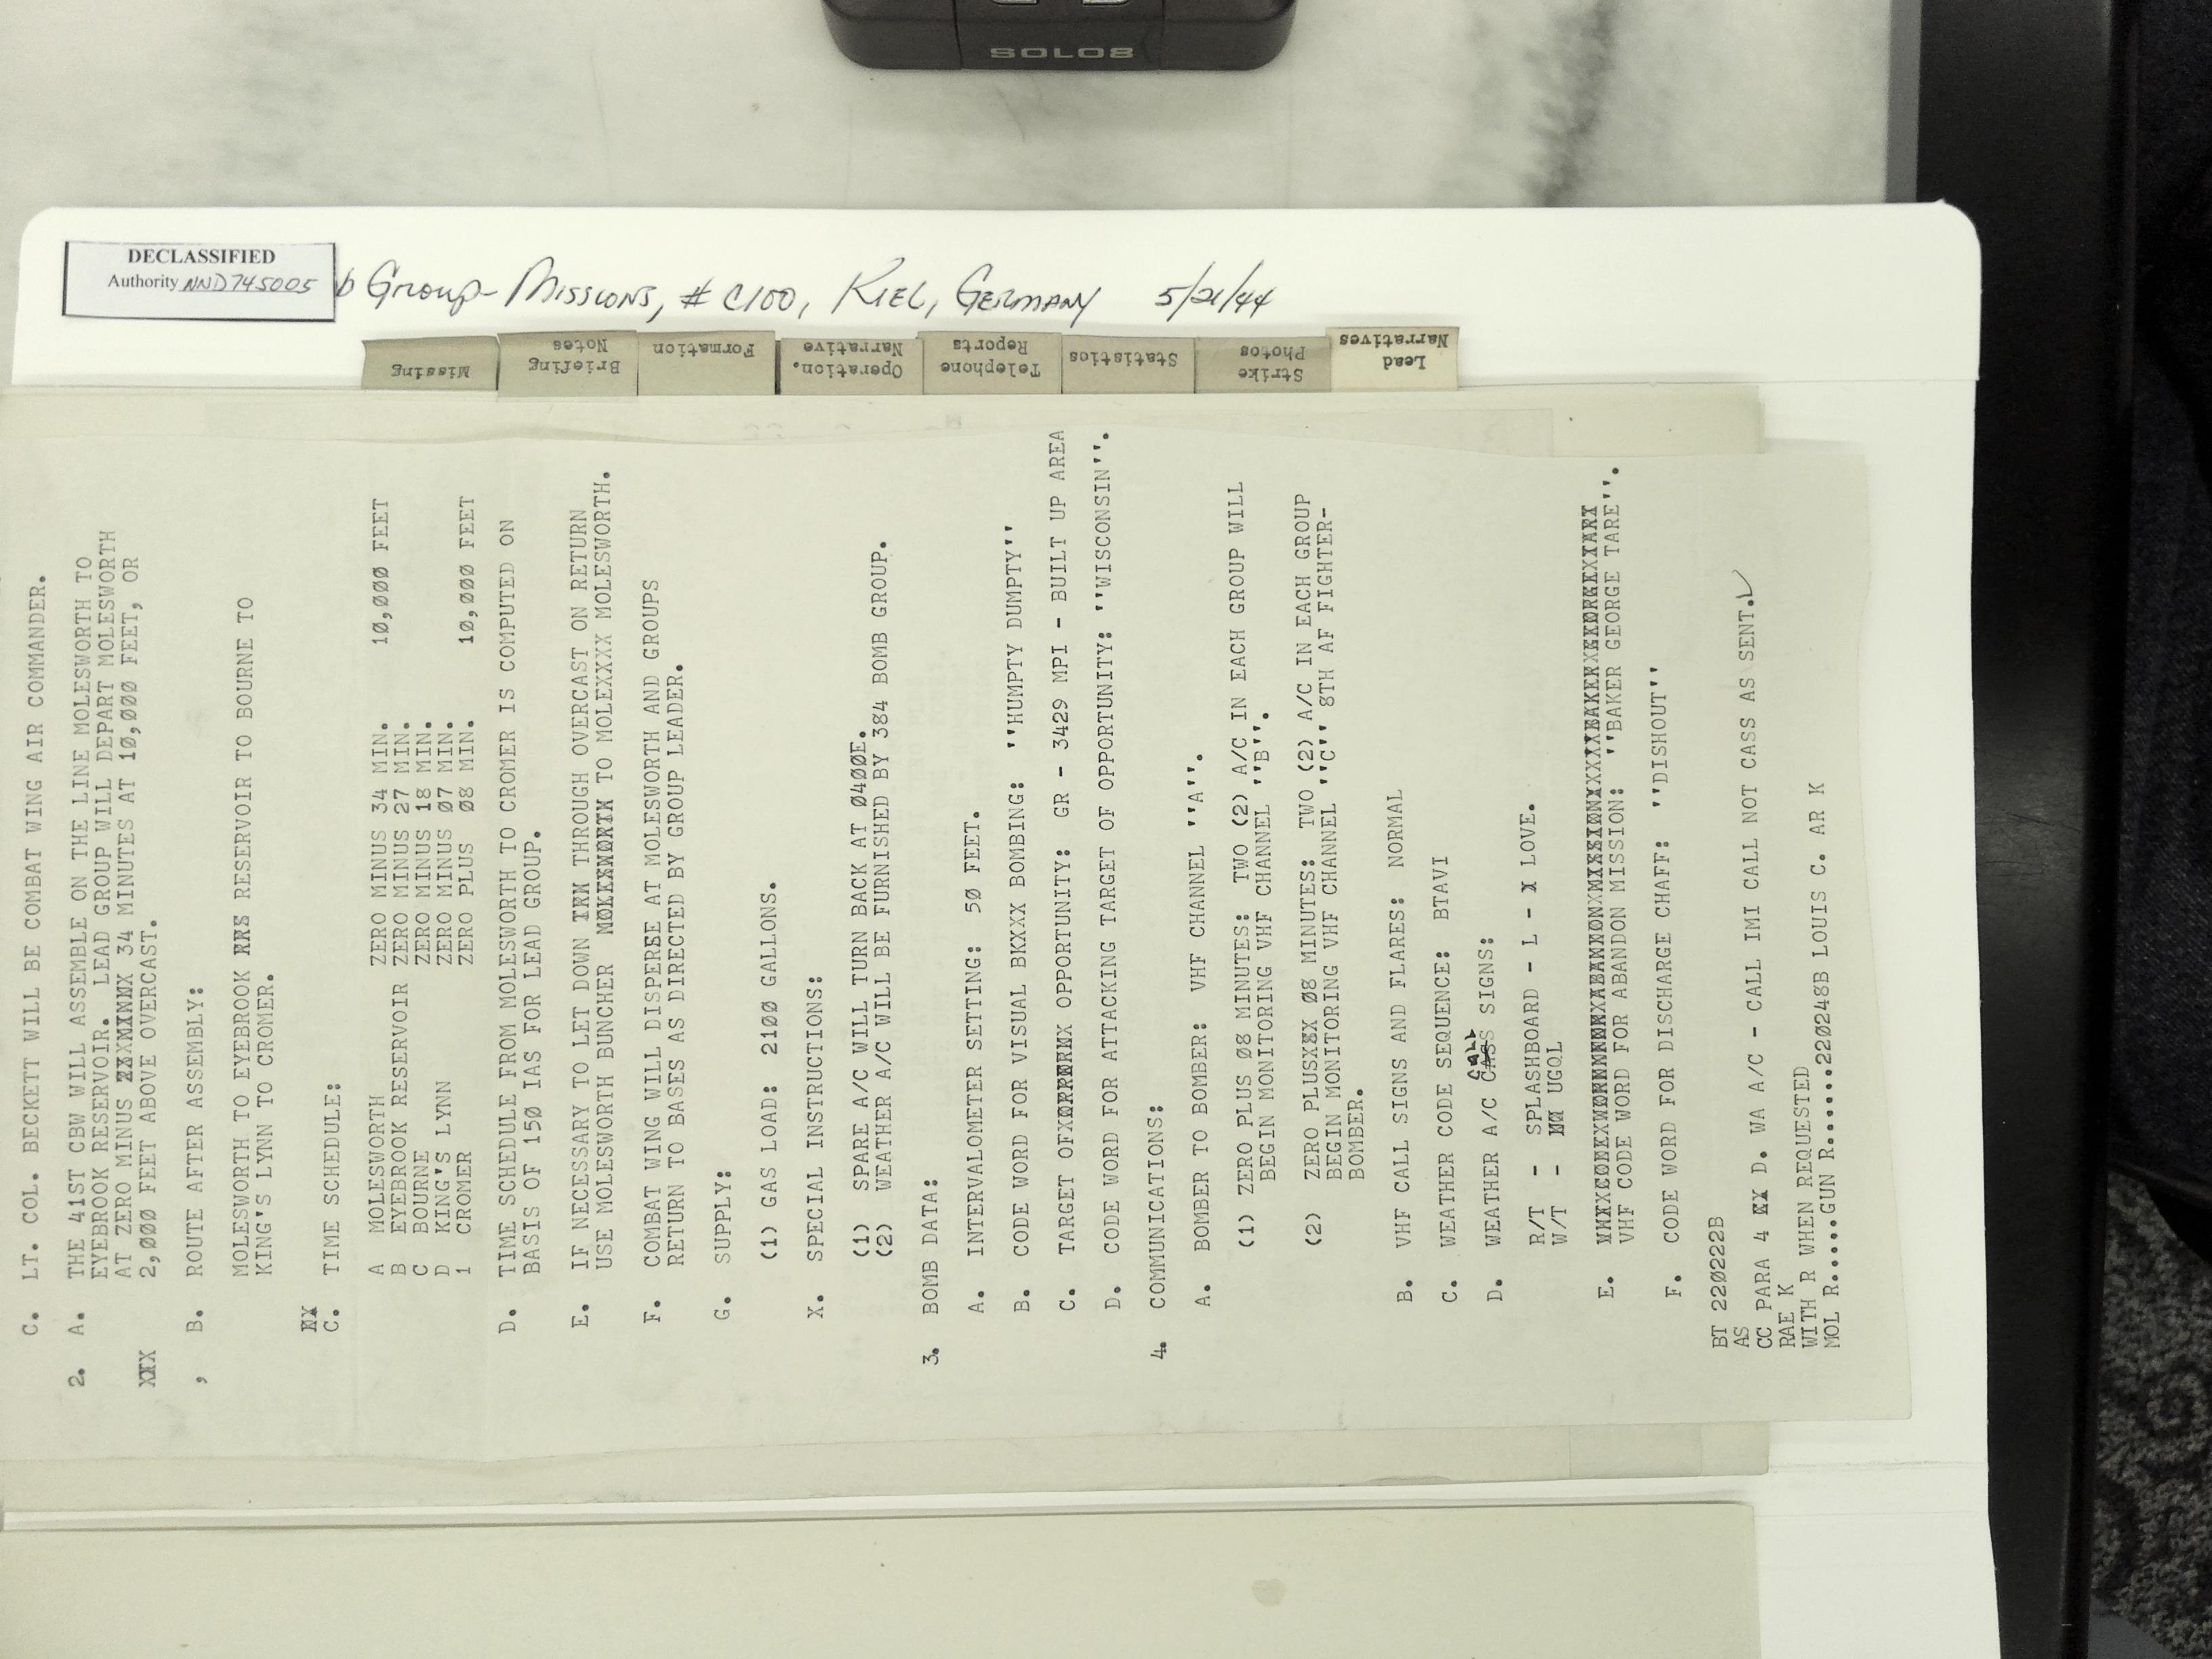 SOLO8
DECLASSIFIED
Authority NND745005
b Group- Missions, # C100, Kiel, Germany 5/21/44
Missing
Briefing
Notes
Formation
Operation.
Narrative
Telephone
Reports
Statistics
Strike
Photos
Lead
Narratives
C. LT. COL. BECKETT WILL BE COMBAT WING AIR COMMANDER.
2. A. THE 41ST CBW WILL ASSEMBLE ON THE LINE MOLESWORTH TO
EYEBROOK RESERVOIR. LEAD GROUP WILL DEPART MOLESWORTH
AT ZERO MINUS 34 MINUTES AT 10,000 FEET, OR
XXX 2,000 FEET ABOVE OVERCAST.
, B. ROUTE AFTER ASSEMBLY:
MOLESWORTH TO EYEBROOK RESERVOIR TO BOURNE TO
KING'S LYNN TO CROMER.
C. TIME SCHEDULE:
A MOLESWORTH ZERO MINUS 34 MIN. 10,000 FEET
B EYEBROOK RESERVOIR ZERO MINUS 27 MIN.
C BOURNE ZERO MINUS 18 MIN.
D KING'S LYNN ZERO MINUS 07 MIN.
1 CROMER ZERO PLUS 08 MIN. 10,000 FEET
D. TIME SCHEDULE FROM MOLESWORTH TO CROMER IS COMPUTED ON
BASIS OF 150 IAS FOR LEAD GROUP.
E. IF NECESSARY TO LET DOWN THROUGH OVERCAST ON RETURN
USE MOLESWORTH BUNCHER TO MOLEXXXX MOLESWORTH.
F. COMBAT WING WILL DISPERSE AT MOLESWORTH AND GROUPS
RETURN TO BASES AS DIRECTED BY GROUP LEADER.
G. SUPPLY:
(1) GAS LOAD: 2100 GALLONS.
X. SPECIAL INSTRUCTIONS:
(1) SPARE A/C WILL TURN BACK AT 0400E.
(2) WEATHER A/C WILL BE FURNISHED BY 384 BOMB GROUP.
3. BOMB DATA:
A. INTERVALOMETER SETTING: 50 FEET.
B. CODE WORD FOR VISUAL BKXXX BOMBING: ''HUMPTY DUMPTY''
C. TARGET OF OPPORTUNITY: GR - 3429 MPI - BUILT UP AREA
D. CODE WORD FOR ATTACKING TARGET OF OPPORTUNITY: ''WISCONSIN''.
4. COMMUNICATIONS:
A. BOMBER TO BOMBER: VHF CHANNEL ''A''.
(1) ZERO PLUS 08 MINUTES: TWO (2) A/C IN EACH GROUP WILL
BEGIN MONITORING VHF CHANNEL ''B''.
(2) ZERO PLUS 08 MINUTES: TWO (2) A/C IN EACH GROUP
BEGIN MONITORING VHF CHANNEL ''C'' 8TH AF FIGHTER-
BOMBER.
B. VHF CALL SIGNS AND FLARES: NORMAL
C. WEATHER CODE SEQUENCE: BTAVI
CALL
D. WEATHER A/C CASS SIGNS:
R/T - SPLASHBOARD - L - X LOVE.
W/T - UGQL
E.
VHF CODE WORD FOR ABANDON MISSION: ''BAKER GEORGE TARE''.
F. CODE WORD FOR DISCHARGE CHAFF: ''DISHOUT''
BT 220222B
AS
CC PARA 4 D. WA A/C - CALL IMI CALL NOT CASS AS SENT.
RAE K
WITH R WHEN REQUESTED
MOL R.....GUN R......220248B LOUIS C. AR K